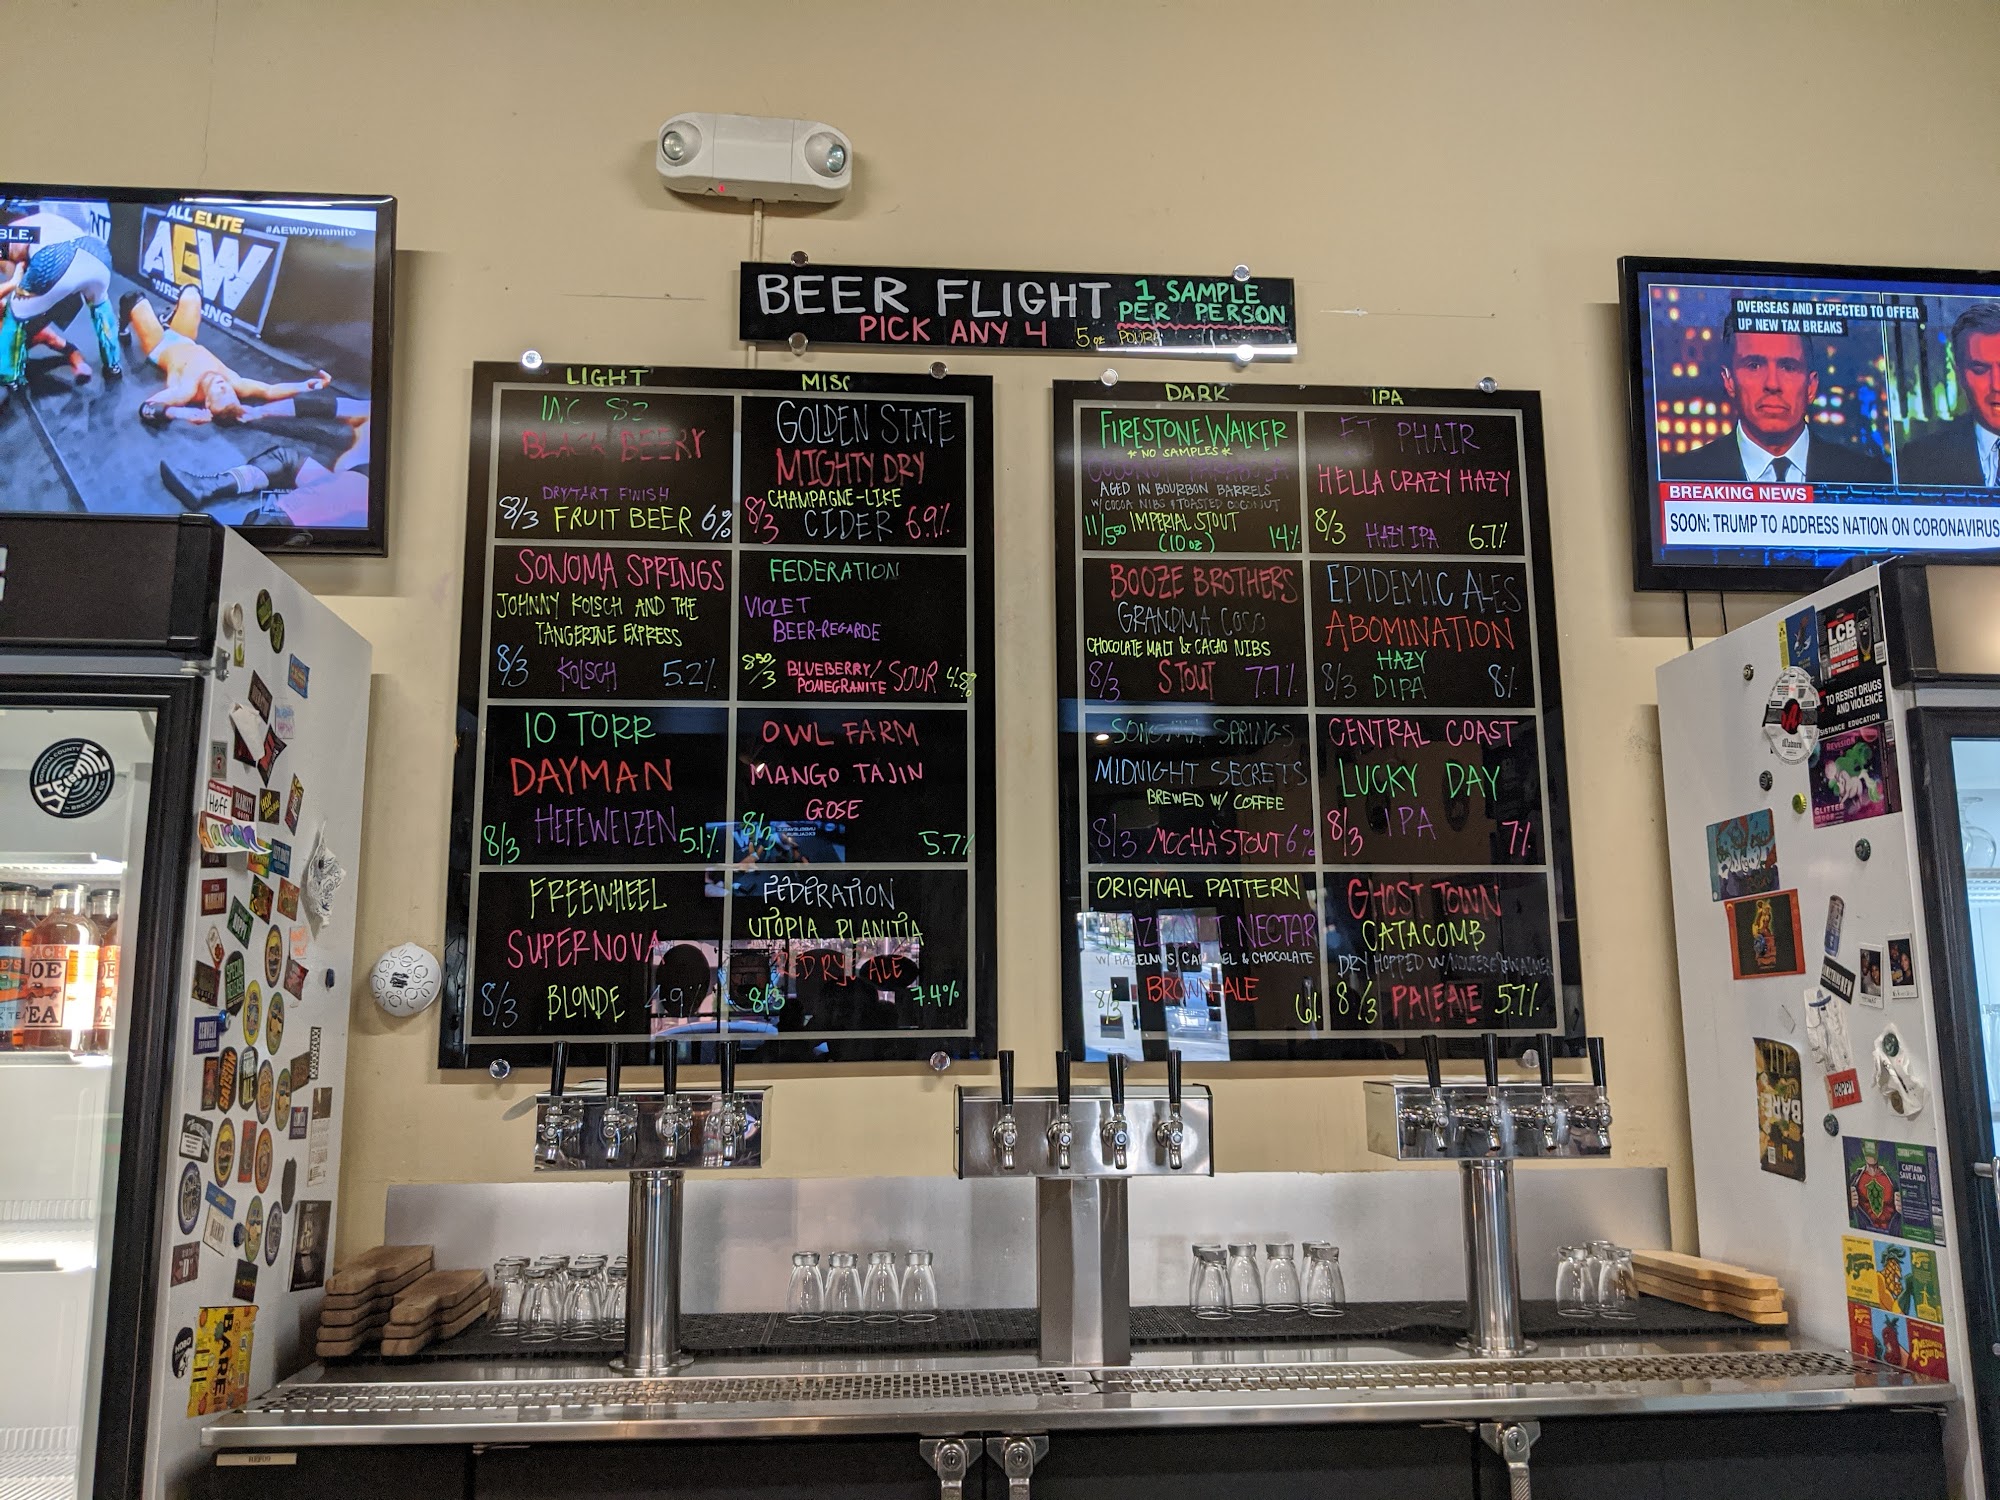 BEER FLIGHT 1 SAMPLE
PER PERSON
PICK ANY 4 5oz
LIGHT
BLACK BEERY
DRY/TART FINISH
8/3 FRUIT BEER 6%
SONOMA SPRINGS
JOHNNY KOLSCH AND THE
TANGERINE EXPRESS
8/3 KOLSCH 5.2%
10 TORR
DAYMAN
HEFEWEIZEN
8/3 5.1%
FREEWHEEL
SUPERNOVA
8/3 BLONDE 4.9%
MISC
GOLDEN STATE
MIGHTY DRY
CHAMPAGNE-LIKE
8/3 CIDER 6.9%
FEDERATION
VIOLET
BEER-REGARDE
8⁵⁰/3 BLUEBERRY/ SOUR 4.8%
POMEGRANITE
OWL FARM
MANGO TAJIN
GOSE
8/3 5.7%
FEDERATION
UTOPIA PLANITIA
RED RYE ALE
8/3 7.4%
DARK
FIRESTONE WALKER
* NO SAMPLES *
AGED IN BOURBON BARRELS
W/ COCOA NIBS & TOASTED COCONUT
11/5⁵⁰ IMPERIAL STOUT 14%
(10 oz)
BOOZE BROTHERS
GRANDMA COCO
CHOCOLATE MALT & CACAO NIBS
8/3 STOUT 7.7%
SONOMA SPRINGS
MIDNIGHT SECRETS
BREWED W/ COFFEE
8/3 MOCHA STOUT 6%
ORIGINAL PATTERN
HAZELNUT NECTAR
W/ HAZELNUTS, CARAMEL & CHOCOLATE
8/3 BROWN ALE 6%
IPA
EJ PHAIR
HELLA CRAZY HAZY
8/3 HAZY IPA 6.7%
EPIDEMIC ALES
ABOMINATION
HAZY
8/3 DIPA 8%
CENTRAL COAST
LUCKY DAY
8/3 IPA 7%
GHOST TOWN
CATACOMB
DRY HOPPED W/
8/3 PALE ALE 5.7%
ALL ELITE
AEW
WRESTLING
#AEWDynamite
BLE,
OVERSEAS AND EXPECTED TO OFFER
UP NEW TAX BREAKS
BREAKING NEWS
SOON: TRUMP TO ADDRESS NATION ON CORONAVIRUS
LCB
TO RESIST DRUGS
AND VIOLENCE
REVISION
GLITTER
HOPPY
BARE
CAPTAIN
SAVE A'MO
BARE
Hoff